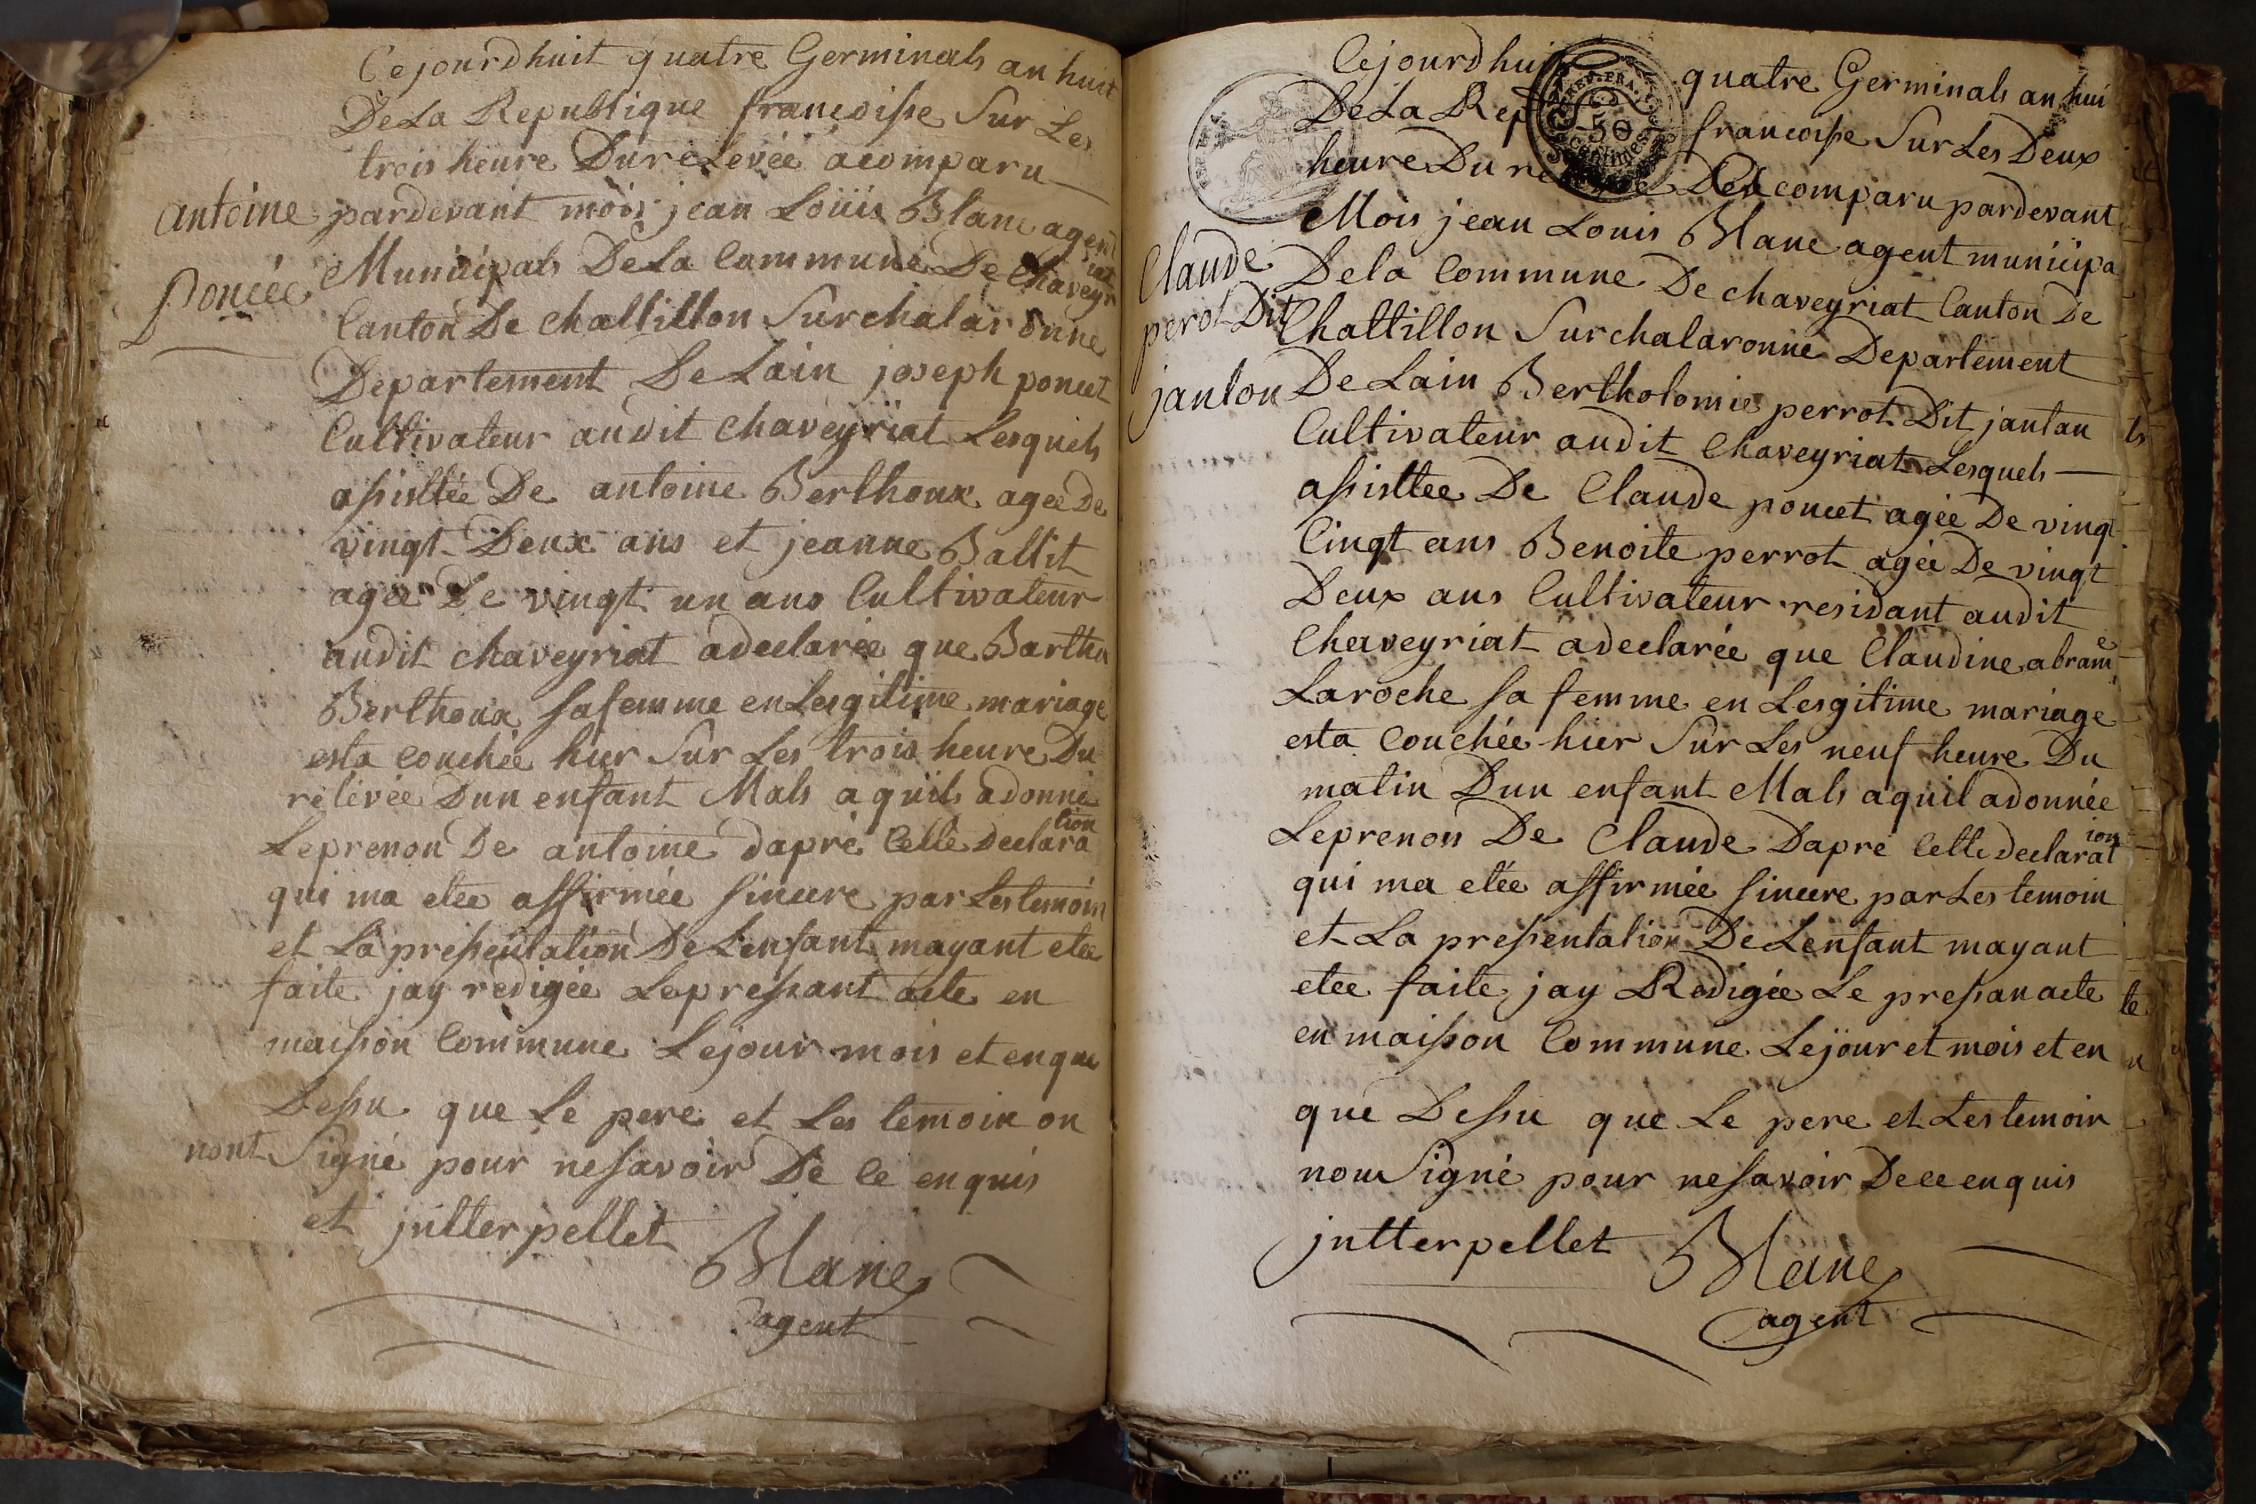 Cejourdhuit quatre Germinals an huit
De La Republique francoisse Sur Les
trois heure Du relevée acomparu
antoine
poncée
pardevant mois jean Louis Blanc agent
Municipals De La Commune De Chaveyriat
Canton De chattillon Sur chalaronne
Departement De Lain joseph poncet
Cultivateur audit chaveyriat Lesquels
assisttée De antoine Berthoux agée De
vingt Deux ans et jeanne Ballit
agée De vingt un ans Cultivateur
audit chaveyriat a declarée que Bartho
Berthoux sa femme en Lesgitime mariage
esta couchée hier Sur Les trois heure Du
relevée Dun enfant Mals a quils a donné
Leprenon De antoine dapré Cette Declaration
qui ma etée affirmée sincere par Les temoin
et La pressentation De Lenfant mayant etée
faite jay redigée Le pressant acte en
maisson Commune Lejour mois et en que
Dessu que Le pere et Les temoin on
nont Signé pour ne savoir De ce enquis
et jntterpellet
Blanc
agent
Cejourdhuit quatre Germinals an hui
De La Rep francoisse Sur Les Deux
50 centimes
heure Du acomparu pardevant
Mois jean Louis Blanc agent municipa
Claude
perot Dit
janton
De la Commune De chaveyriat Canton De
Chattillon Sur chalaronne Departement
De Lain Bertholomie perrot Dit jantan
Cultivateur audit Chaveyriat Lesquels
assisttee De Claude poncet agée De vingt
Cinqt ans Benoite perrot agée De vingt
Deux ans Cultivateur residant audit
Chaveyriat a declarée que Claudine abrame
Laroche sa femme en Lesgitime mariage
esta Couchée hier Sur Les neuf heure Du
matin Dun enfant Mals a quil a donnée
Leprenon De Claude Dapré Cette declaration
qui ma etée affirmée sincere par Les temoin
et La pressentation De Lenfant mayant
etee faite jay Redigée Le pressan acte
en maisson Commune Lejour et mois et en
que Dessu que Le pere et Les temoin
nou Signé pour ne savoir De ce enquis
jntterpellet
Blanc
agent